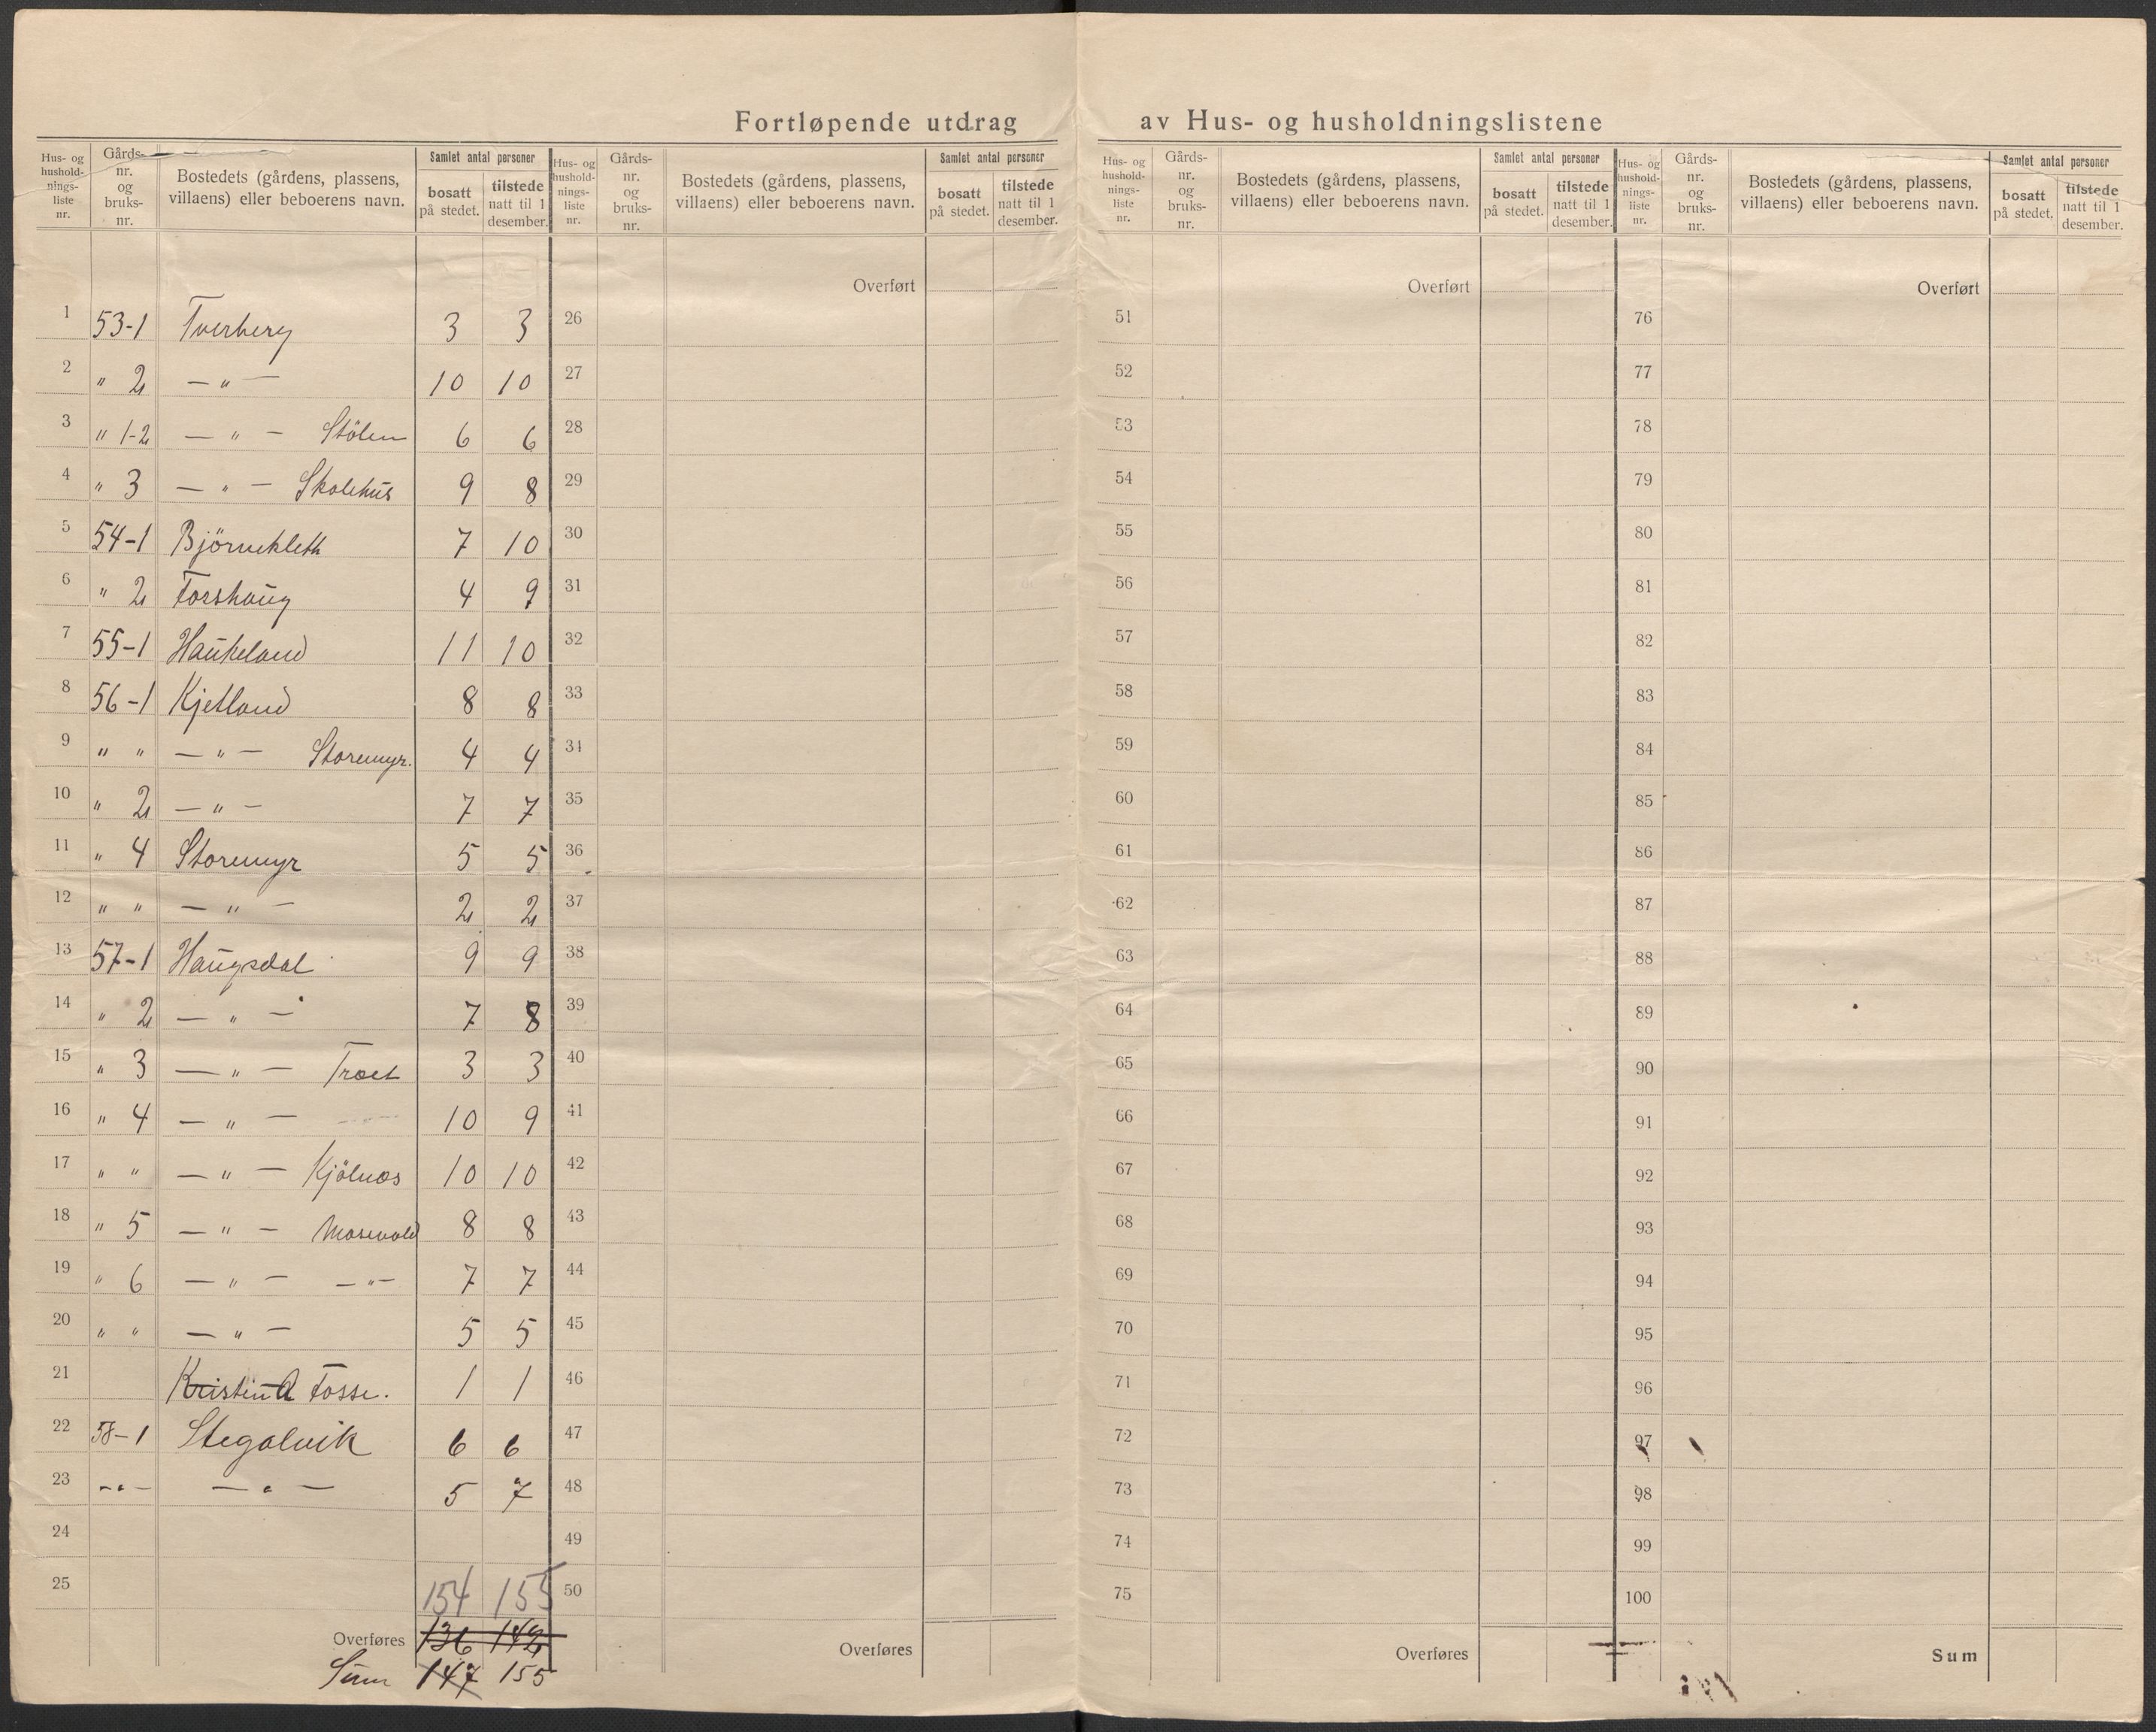 Fortløpende utdrag av Hus- og husholdningslistene
Hus- og hushold-nings-liste nr. Gårds-nr. og bruks-nr. Bostedets (gårdens, plassens, villaens) eller beboerens navn. Samlet antal personer bosatt på stedet. tilstede natt til 1 desember.
1 53-1 Tverberg 3 3
2 " 2 — " — 10 10
3 " 1-2 — " — Stölen 6 6
4 " 3 — " — Skolehus 9 8
5 54-1 Björnekleth 7 10
6 " 2 Forshaug 4 9
7 55-1 Haukeland 11 10
8 56-1 Kjetland 8 8
9 " " — " — Storemyr. 4 4
10 " 2 — " — 7 7
11 " 4 Storemyr 5 5
12 " " — " — 2 2
13 57-1 Haugsdal 9 9
14 " 2 — " — 7 8
15 " 3 — " — Træet 3 3
16 " 4 — " — 10 9
17 " " — " — Kjölnæs 10 10
18 " 5 — " — Mosevold 8 8
19 " 6 — " — — " — 7 7
20 " " — " — 5 5
21 Kristina Fosse. 1 1
22 58-1 Stegalvik 6 6
23 — " — — " — 5 7
24
25 154 155
Overføres 136 142
Sum 147 155
Hus- og hushold-nings-liste nr. Gårds-nr. og bruks-nr. Bostedets (gårdens, plassens, villaens) eller beboerens navn. Samlet antal personer bosatt på stedet. tilstede natt til 1 desember.
Overført
26
27
28
29
30
31
32
33
34
35
36
37
38
39
40
41
42
43
44
45
46
47
48
49
50
Overføres
Hus- og hushold-nings-liste nr. Gårds-nr. og bruks-nr. Bostedets (gårdens, plassens, villaens) eller beboerens navn. Samlet antal personer bosatt på stedet. tilstede natt til 1 desember.
Overført
51
52
53
54
55
56
57
58
59
60
61
62
63
64
65
66
67
68
69
70
71
72
73
74
75
Overføres
Hus- og hushold-nings-liste nr. Gårds-nr. og bruks-nr. Bostedets (gårdens, plassens, villaens) eller beboerens navn. Samlet antal personer bosatt på stedet. tilstede natt til 1 desember.
Overført
76
77
78
79
80
81
82
83
84
85
86
87
88
89
90
91
92
93
94
95
96
97
98
99
100
Sum